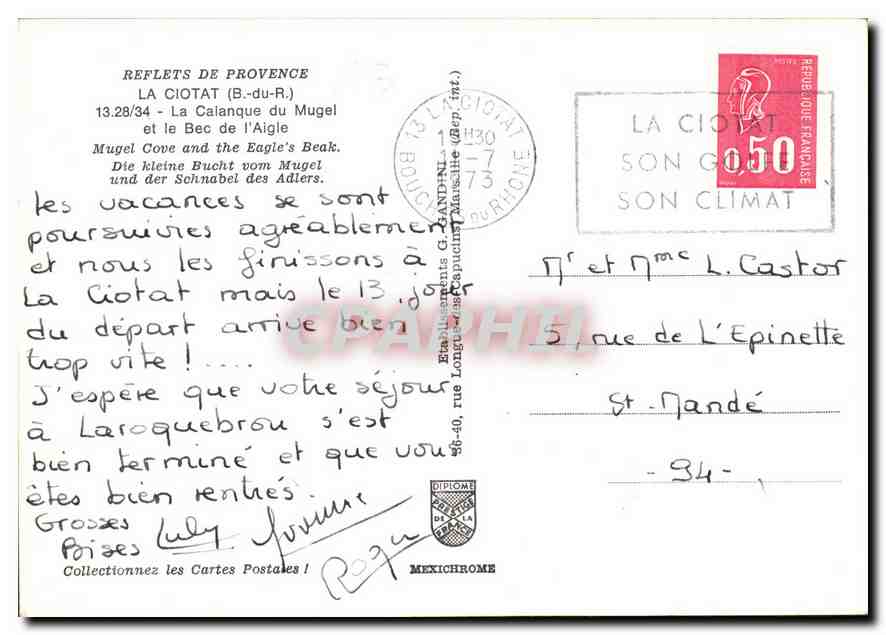 REFLETS DE PROVENCE
LA CIOTAT (B.-du-R.)
13.28/34 - La Calanque du Mugel
et le Bec de l'Aigle
Mugel Cove and the Eagle's Beak.
Die kleine Bucht vom Mugel
und der Schnabel des Adlers.
Les vacances se sont
poursuivies agréablement
et nous les finissons à
La Ciotat mais le 13, jour
du départ arrive bien
trop vite ! ....
J'espère que votre séjour
à Laroquebrou s'est
bien terminé et que vous
êtes bien rentrés.
Grosses
Bises Luly Yvonne
Roger
Collectionnez les Cartes Postales !
Etablissements G. GANDINI
36-40, rue Longue-des-Capucins, Marseille (Rep. int.)
DIPLOME
PRESTIGE
DE LA
FRANCE
MEXICHROME
13 LA CIOTAT
H30
-7
73
BOUCHES DU RHONE
LA CIOTAT
SON GOLFE
SON CLIMAT
REPUBLIQUE FRANÇAISE
0,50
Mr et Mme L. Castor
5, rue de L'Epinette
St-Mandé
-94-
CPAPHIL